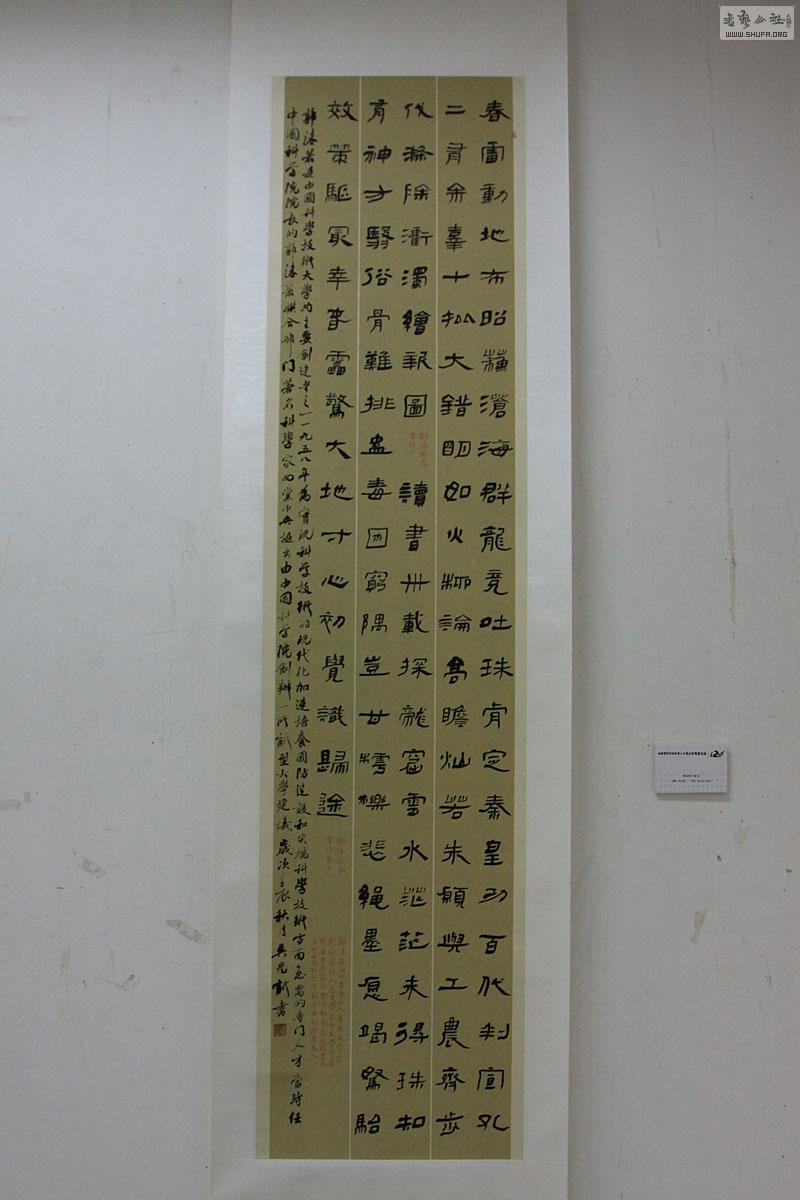 春雷動地布昭蘇滄海群龍竟吐珠肯定秦皇功百代判宣孔
二有余辜十批大錯明如火柳論高瞻灿若朱願與工農齊步
伐滌除污濁繪新圖
讀書卅載探龍窟雲水茫茫未得珠知
有神方醫俗骨難排蠱毒困窮隅豈甘樗櫟悲繩墨愿竭駑駘
效策驅最幸春雷驚大地寸心初覺識歸途
郭沫若是中國科學技術大學的主要創建者之一一九五八年為實現科學技術的現代化加速培養國防建設和尖端科學技術方面急需的專門人才當時任
中國科學院院長的郭沫若聯合部門著名科學家向黨中央提出由中國科學院創辦一所新型大學建議歲次壬辰秋月吳光新書
書藝公社
WWW.SHUFA.ORG